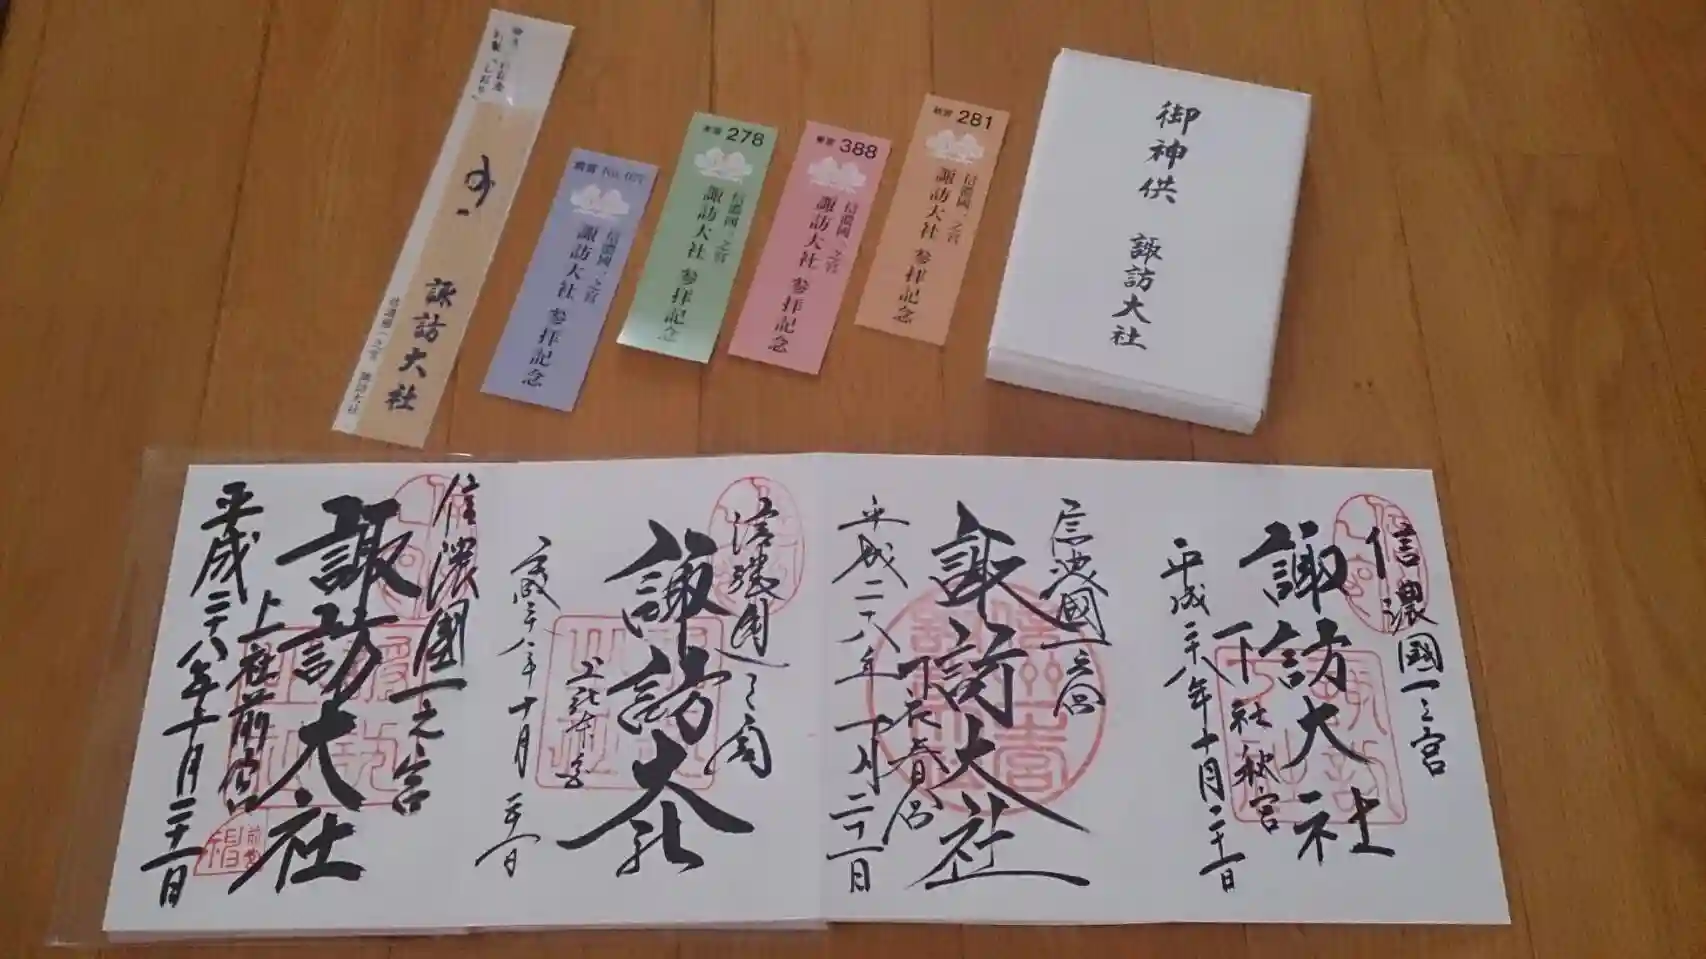 諏訪大社
信濃國一之宮 諏訪大社
前宮 No.
信濃國一之宮
諏訪大社 参拝記念
本宮 278
信濃國一之宮
諏訪大社 参拝記念
春宮 388
信濃國一之宮
諏訪大社 参拝記念
秋宮 281
信濃國一之宮
諏訪大社 参拝記念
御神供 諏訪大社
信濃國一之宮
諏訪大社
下社秋宮
平成二十八年十月二十二日
信濃國一之宮
諏訪大社
下社春宮
平成二十八年十月二十二日
信濃國一之宮
諏訪大社
上社本宮
平成二十八年十月二十二日
信濃國一之宮
諏訪大社
上社前宮
平成二十八年十月二十二日